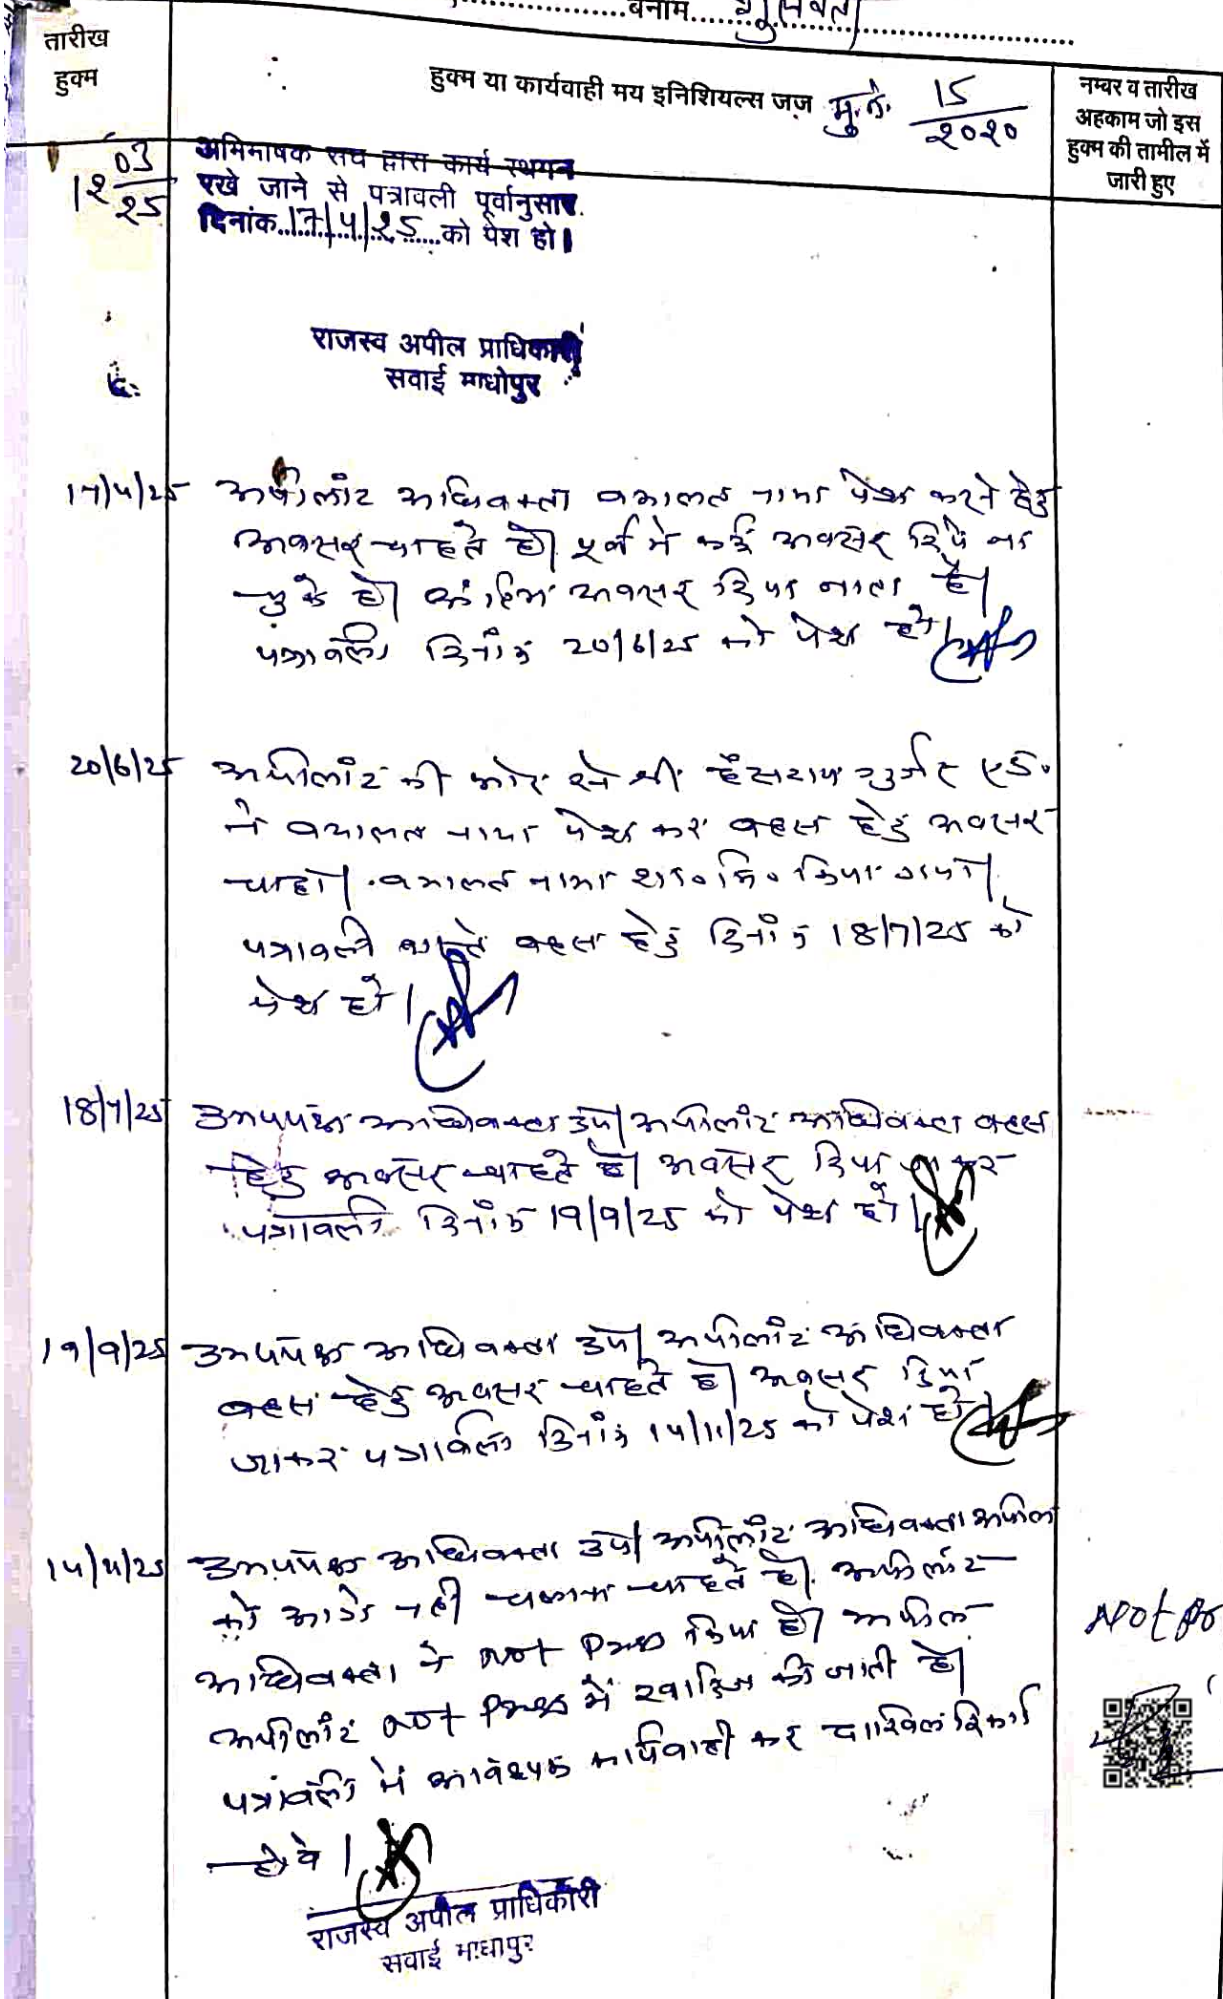 बनाम
तारीख
हुक्म
हुक्म या कार्यवाही मय इनिशियल्स जज़ मु.नं. 15/२०२०
नम्बर व तारीख
अहकाम जो इस
हुक्म की तामील में
जारी हुए
1२/03/२5
अभिभाषक संघ द्वारा कार्य स्थगन
रखे जाने से पत्रावली पूर्वानुसार
दिनांक 17/4/25 को पेश हो।
राजस्व अपील प्राधिकारी
सवाई माधोपुर
17/4/25 अपीलांट अधिवक्ता वकालत नामा पेश करने हेतु
अवसर चाहते है। पूर्व में कई अवसर दिये जा
चुके है। अंतिम अवसर दिया जाता है।
पत्रावली दिनांक 20/6/25 को पेश हो।
20/6/25 अपीलांट की ओर से श्री हंसराज गुर्जर एड.
ने वकालत नामा पेश कर बहस हेतु अवसर
चाहा। वकालत नामा शा० मि० किया गया।
पत्रावली वास्ते बहस हेतु दिनांक 18/7/25 को
पेश हो।
18/7/25 उभयपक्ष अधिवक्ता उप। अपीलांट अधिवक्ता बहस
हेतु अवसर चाहते है। अवसर दिया जाकर
पत्रावली दिनांक 19/9/25 को पेश हो।
19/9/25 उभयपक्ष अधिवक्ता उप। अपीलांट अधिवक्ता
बहस हेतु अवसर चाहते है। अवसर दिया
जाकर पत्रावली दिनांक 14/11/25 को पेश हो।
14/11/25 उभयपक्ष अधिवक्ता उप। अपीलांट अधिवक्ता अपील
को आगे नही चलाना चाहते है। अपीलांट
अधिवक्ता ने Not Press किया है। अपील
अपीलांट Not Press में खारिज की जाती है।
पत्रावली में आवश्यक कार्यवाही कर दाखिल रिकार्ड
होवे।
Not
राजस्व अपील प्राधिकारी
सवाई माधोपुर